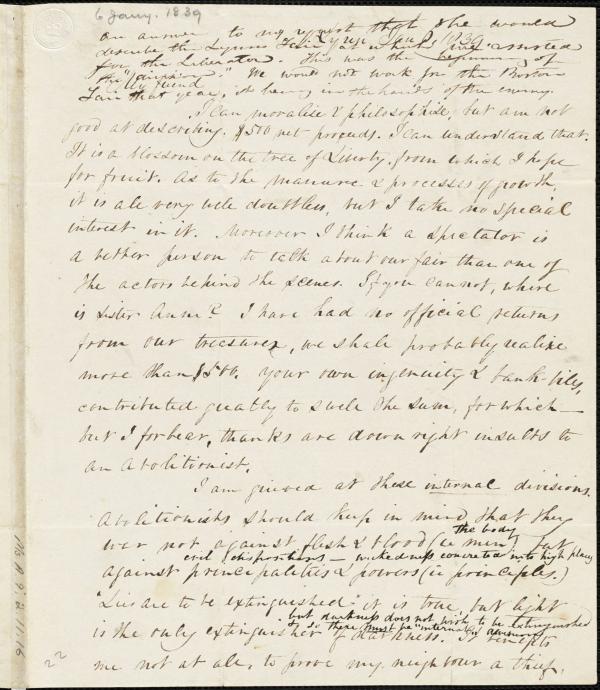 6 Jany. 1839
Lynn Jan 8. 1839
an answer to my request that she would
describe the Lynn Fair, at which she assisted
for the Liberator. This was the beginning of
the "division." We would not work for the Boston
My friend
Fair that year, it being in the hands of the enemy.
I can moralise & philosophise, but am not
good at describing. $500 net proceeds. I can understand that.
It is a blossom on the tree of Liberty, from which I hope
for fruit. As to the manure & processes of growth,
it is all very well doubtless, but I take no special
interest in it. Moreover I think a spectator is
a better person to talk about our fair than one of
the actors behind the scenes. If you cannot, where
is Sister Anne? I have had no official returns
from our treasurer, we shall probably realize
more than $500. Your own ingenuity & bank-bills,
contributed greatly to swell the sum, for which —
but I forbear, thanks are down right insults to
an abolitionist.
I am grieved at these internal divisions.
Abolitionists should keep in mind that they
the body
war not against flesh & blood (ie men) but
evil dispositions — wickedness concreted into high places
against principalities & powers (ie principles.)
"Lies are to be extinguished" it is true, but light
but darkness does not wish to be extinguished
is the only extinguisher of darkness. It benefits
& so there must be "internal divisions"
me not at all, to prove my neighbour a thief,
22
Ms. A. 9. 2. 11. 16